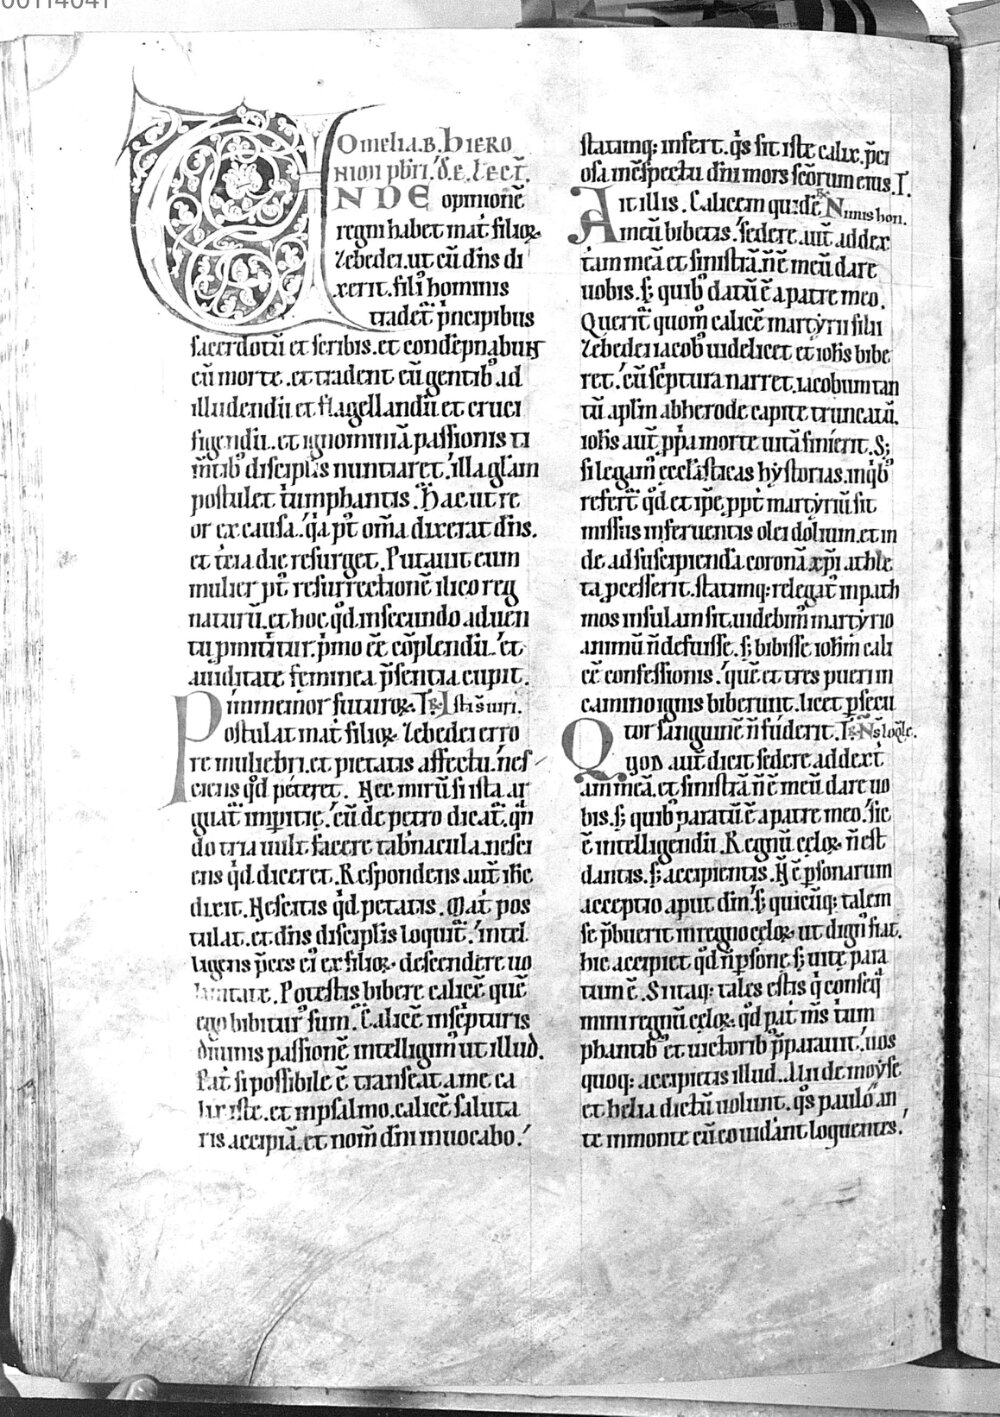 00114041
Omelia. B. hiero
nimi pbri. de. lect.
UNDE opinionē
regni habet mat̄ filioꝝ
zebedei. ut cū dn̄s di
xerit. filiꝰ hominis
tradet̄ pͥncipibus
sacerdotū et scribis. et condēpnabunt
eū morte. et tradent eū gentibꝰ ad
illudendū et flagellandū et cruci
figendū. et ignominiā passionis ti
m̄tibꝰ discipl̄is nuntiaret. illa gl̄am
postulet tͥumphantis. Hac ut re
or ex causa. qͥa pꝰt om̄a dixerat dn̄s.
et tc̄ia die resurget. Putauit eum
mulier pꝰt resurrectionē ilico reg
naturū. et hoc qͩd in secundo aduen
tu ꝓmittitur. pͥmo ēē cōplendū. et
auiditate feminea p̄sentia cupit.
inmemor futuroꝝ.
Postulat mat̄ filioꝝ zebedei erro
re muliebri. et pietatis affectu. nes
ciens qͩd peteret. Nec mirū si ista ar
guat̄ imperitię. cū de petro dicat̄. qn̄
do tria uult facere tab̄nacula. nesci
ens qͩd diceret. Respondens aut̄ ih̄c
dixit. Nescitis qͩd petatis. Mat̄ pos
tulat. et dn̄s discipl̄is loquit̄. intel
ligens p̄ces eiꝰ ex filioꝝ descendere uo
luntate. Potestis bibere calicē quē
ego bibiturꝰ sum. Calicē in scͥpturis
diuinis passionē intelligimꝰ ut illud.
Pat̄ si possibile ē transeat a me ca
lix iste. et in psalmo. calicē saluta
ris accipiā. et nom̄ dn̄i inuocabo.
statimqꝫ infert. qͥs sit iste calix. p̄ci
osa in c̄spectu dn̄i mors sc̄orum eius.
Ait illis. Calicem quidē Nimis hon.
meū bibetis. sedere aut̄ ad dex
tam meā et sinistrā. n̄ ē meū dare
uobis. sꝫ quibꝰ datū ē a patre meo.
Querit̄ quom̊ calicē martyrii filii
zebedei iacobꝰ uidelicet et ioh̄s bibe
ret. cū scͥptura narret. iacobum tan
tū apl̄m ab herode capite truncatū.
ioh̄s aut̄ ꝓpͥa morte uitā finierit. Sꝫ
si legam̄ eccl̄asticas hystorias. in qͥbꝰ
refert̄ qͩd et ip̄e. ppt̄ martyriū sit
missus in feruentis olei dolium. et in
de ad suscipiendā coronā xp̄i athle
ta ꝓcesserit. statimqꝫ relegatꝰ in path
mos insulam sit. uidebimꝰ martyrio
animū n̄ defuisse. sꝫ bibisse ioh̄m cali
cē confessionis. quē et tres pueri in
camino ignis biberunt. licet ꝑsecu
tor sanguinē n̄ fuderit.
Quod aut̄ dicit sedere ad dext̄
am meā. et sinistrā n̄ ē meū dare uo
bis. sꝫ quibꝰ paratū ē a patre meo. sic
ē intelligendū. Regnū cęloꝝ n̄ est
dantis. sꝫ accipientis. N̄ ē ꝑsonarum
acceptio aput dm̄. sꝫ quicūqꝫ talem
se p̄buerit in regno cęloꝝ ut dignꝰ fiat.
hic accipiet qͩd n̄ ꝑsonę. sꝫ uitę para
tum ē. Si itaqꝫ tales estis qͥ conseqͣ
mini regnū cęloꝝ. qͩd pat̄ m̄s tͥum
phantibꝰ et uictoribꝰ p̄parauit. uos
quoqꝫ accipietis illud. Unde moyse
et helia dictū uolunt. qͦs paulo an
te in monte cū eo uidant loquentes.